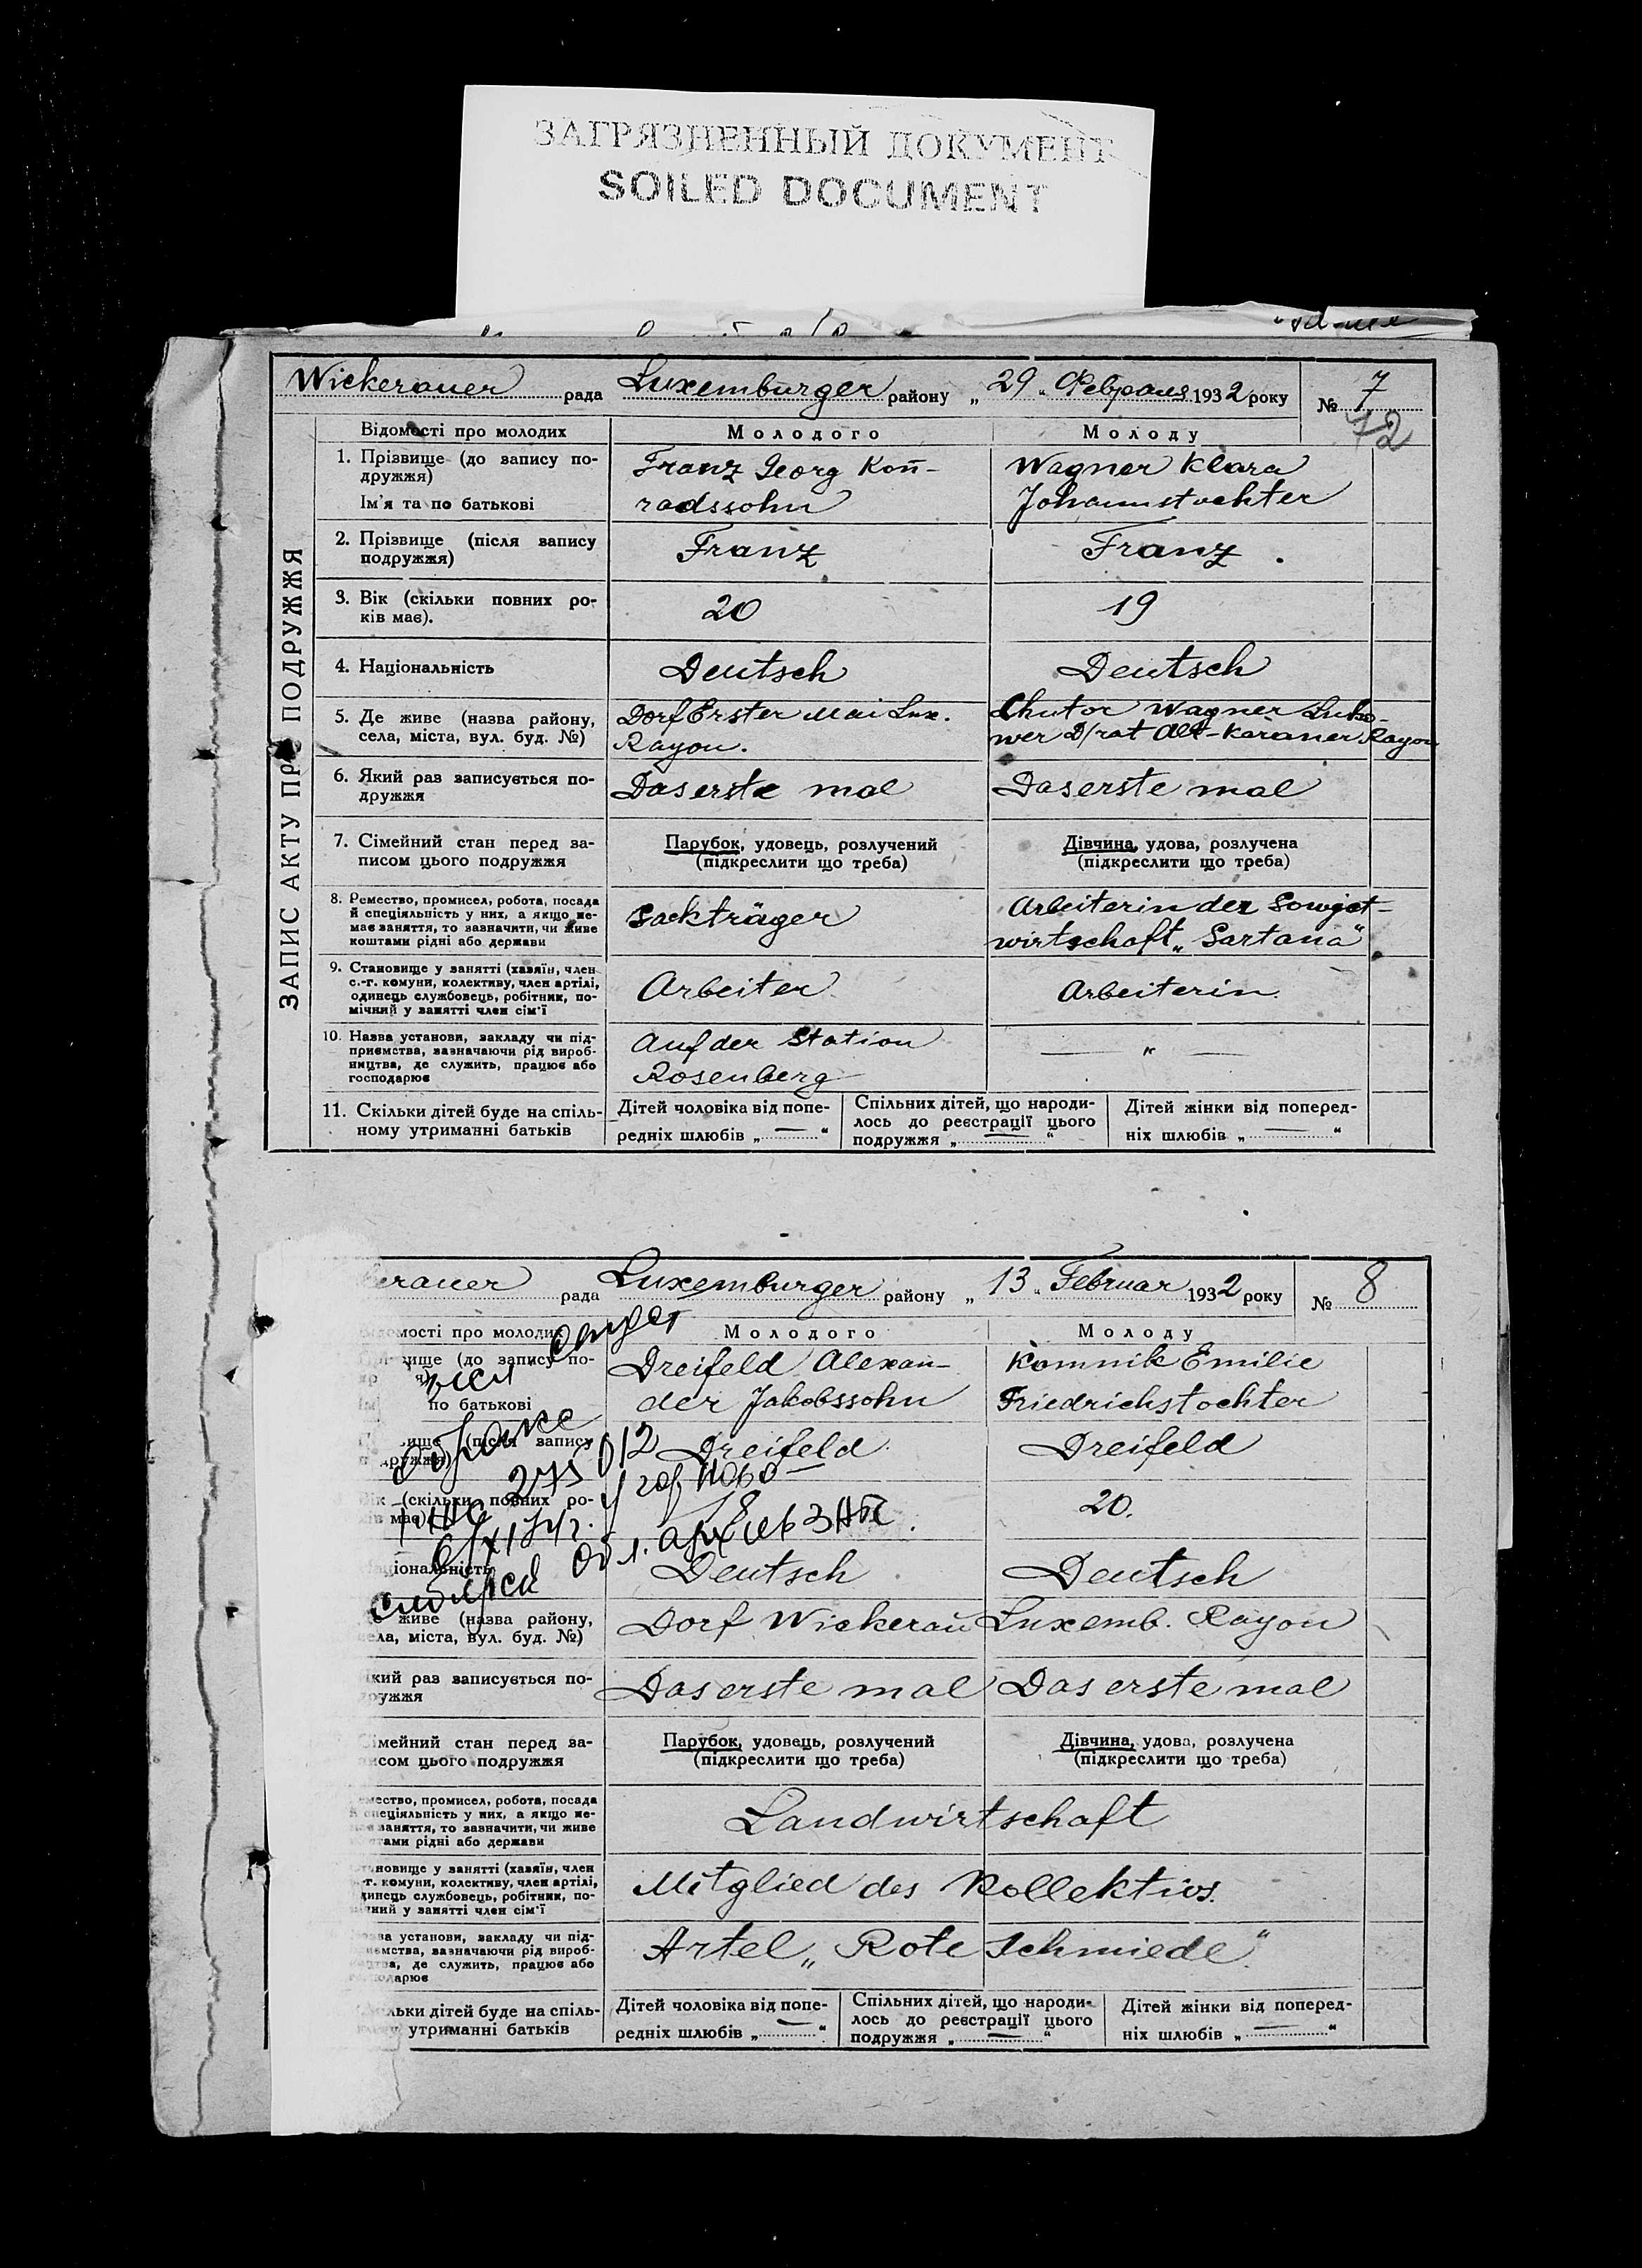 ЗАГРЯЗНЕННЫЙ ДОКУМЕНТ
SOILED DOCUMENT
Wickerauer рада Luxemburger району „ 29 " Февраля 1932 року № 7
72
ЗАПИС АКТУ ПРО ПОДРУЖЖЯ
Відомості про молодих Молодого Молоду
1. Прізвище (до запису по-
дружжя)
Ім'я та по батькові
Franz Georg Kon̄-
radssohn
Wagner Klara
Johannstochter
2. Прізвище (після запису
подружжя)
Franz
Franz.
3. Вік (скільки повних ро-
ків має).
20
19
4. Національність
Deutsch
Deutsch
5. Де живе (назва району,
села, міста, вул. буд. №)
Dorf Erster Mai Lux.
Rayon.
Chutor Wagner
D/rat Alt-Karaner Rayon
6. Який раз записується по-
дружжя
Das erste mal
Das erste mal
7. Сімейний стан перед за-
писом цього подружжя
Парубок, удовець, розлучений
(підкреслити що треба)
Дівчина, удова, розлучена
(підкреслити що треба)
8. Ремество, промисел, робота, посада
й спеціяльність у них, а якщо не-
має заняття, то зазначити, чи живе
коштами рідні або держави
Sackträger
Arbeiterin der Sowjet-
wirtschaft „Sartana"
9. Становище у занятті (хазяїн, член
с.-г. комуни, колективу, член артілі,
одинець службовець, робітник, по-
мічний у занятті член сім'ї
Arbeiter
Arbeiterin.
10. Назва установи, закладу чи під-
приємства, зазначаючи рід вироб-
ництва, де служить, працює або
господарює
Auf der Station
Rosenberg
— " —
11. Скільки дітей буде на спіль-
ному утриманні батьків
Дітей чоловіка від попе-
редніх шлюбів „ — "
Спільних дітей, що народи-
лось до реєстрації цього
подружжя „ — "
Дітей жінки від поперед-
ніх шлюбів „ — "
erauer рада Luxemburger району „ 13 " Februar 1932 року № 8
омості про молодих Молодого Молоду
ище (до запису по-
по батькові
Dreifeld Alexan-
der Jakobssohn
Komnik Emilie
Friedrichstochter
ище (після запису
дружжя)
Dreifeld
Dreifeld
ік (скільки повних ро-
має)
18
20.
ціональність
Deutsch
Deutsch
живе (назва району,
ела, міста, вул. буд. №)
Dorf Wickerau Luxemb. Rayon
кий раз записується по-
ужжя
Das erste mal
Das erste mal
імейний стан перед за-
исом цього подружжя
Парубок, удовець, розлучений
(підкреслити що треба)
Дівчина, удова, розлучена
(підкреслити що треба)
мество, промисел, робота, посада
й спеціяльність у них, а якщо не-
заняття, то зазначити, чи живе
тами рідні або держави
Landwirtschaft
новище у занятті (хазяїн, член
-г. комуни, колективу, член артілі,
динець службовець, робітник, по-
чний у занятті член сім'ї
Mitglied des Kollektivs.
ва установи, закладу чи під-
иємства, зазначаючи рід вироб-
ва, де служить, працює або
дарює
Artel „Rote Schmiede"
льки дітей буде на спіль-
утриманні батьків
Дітей чоловіка від попе-
редніх шлюбів „ — "
Спільних дітей, що народи-
лось до реєстрації цього
подружжя „ — "
Дітей жінки від поперед-
ніх шлюбів „ — "